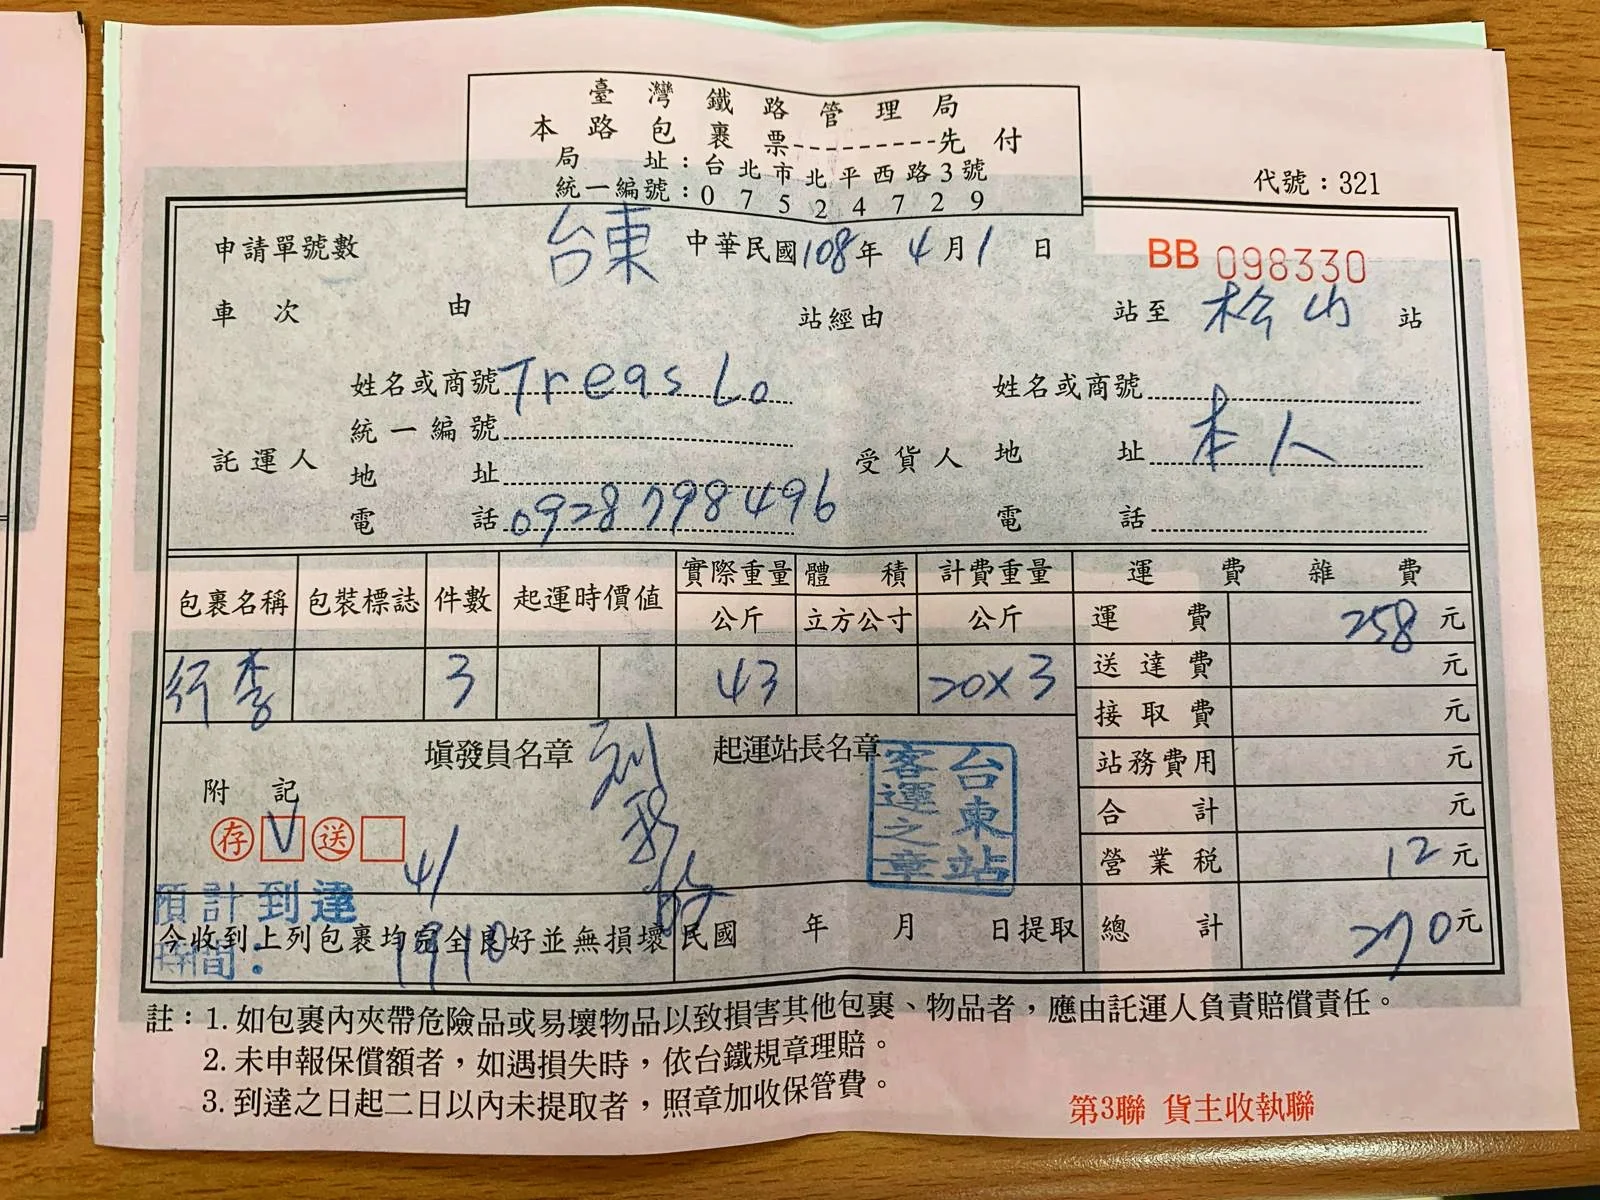 臺灣鐵路管理局
本路包裹票---------先付
局 址：台北市北平西路3號
統一編號：07524729
代號：321
申請單號數 台東 中華民國108年4月1日 BB 098330
車次 由 站經由 站至 松山 站
姓名或商號 Treas Lo 姓名或商號
統一編號
託運人 地址 受貨人 地址 本人
電話 0928798496 電話
包裹名稱 包裝標誌 件數 起運時價值 實際重量 體積 計費重量 運費雜費
公斤 立方公寸 公斤 運費 258元
行李 3 43 20x3 送達費 元
接取費 元
填發員名章 起運站長名章 站務費用 元
台東站客運之章
附記 合計 元
存 V 送 營業稅 12元
預計到達時間： 4/1 1910
今收到上列包裹均完全良好並無損壞 民國 年 月 日提取 總計 270元
註：1. 如包裹內夾帶危險品或易壞物品以致損害其他包裹、物品者，應由託運人負責賠償責任。
2. 未申報保償額者，如遇損失時，依台鐵規章理賠。
3. 到達之日起二日以內未提取者，照章加收保管費。
第3聯 貨主收執聯